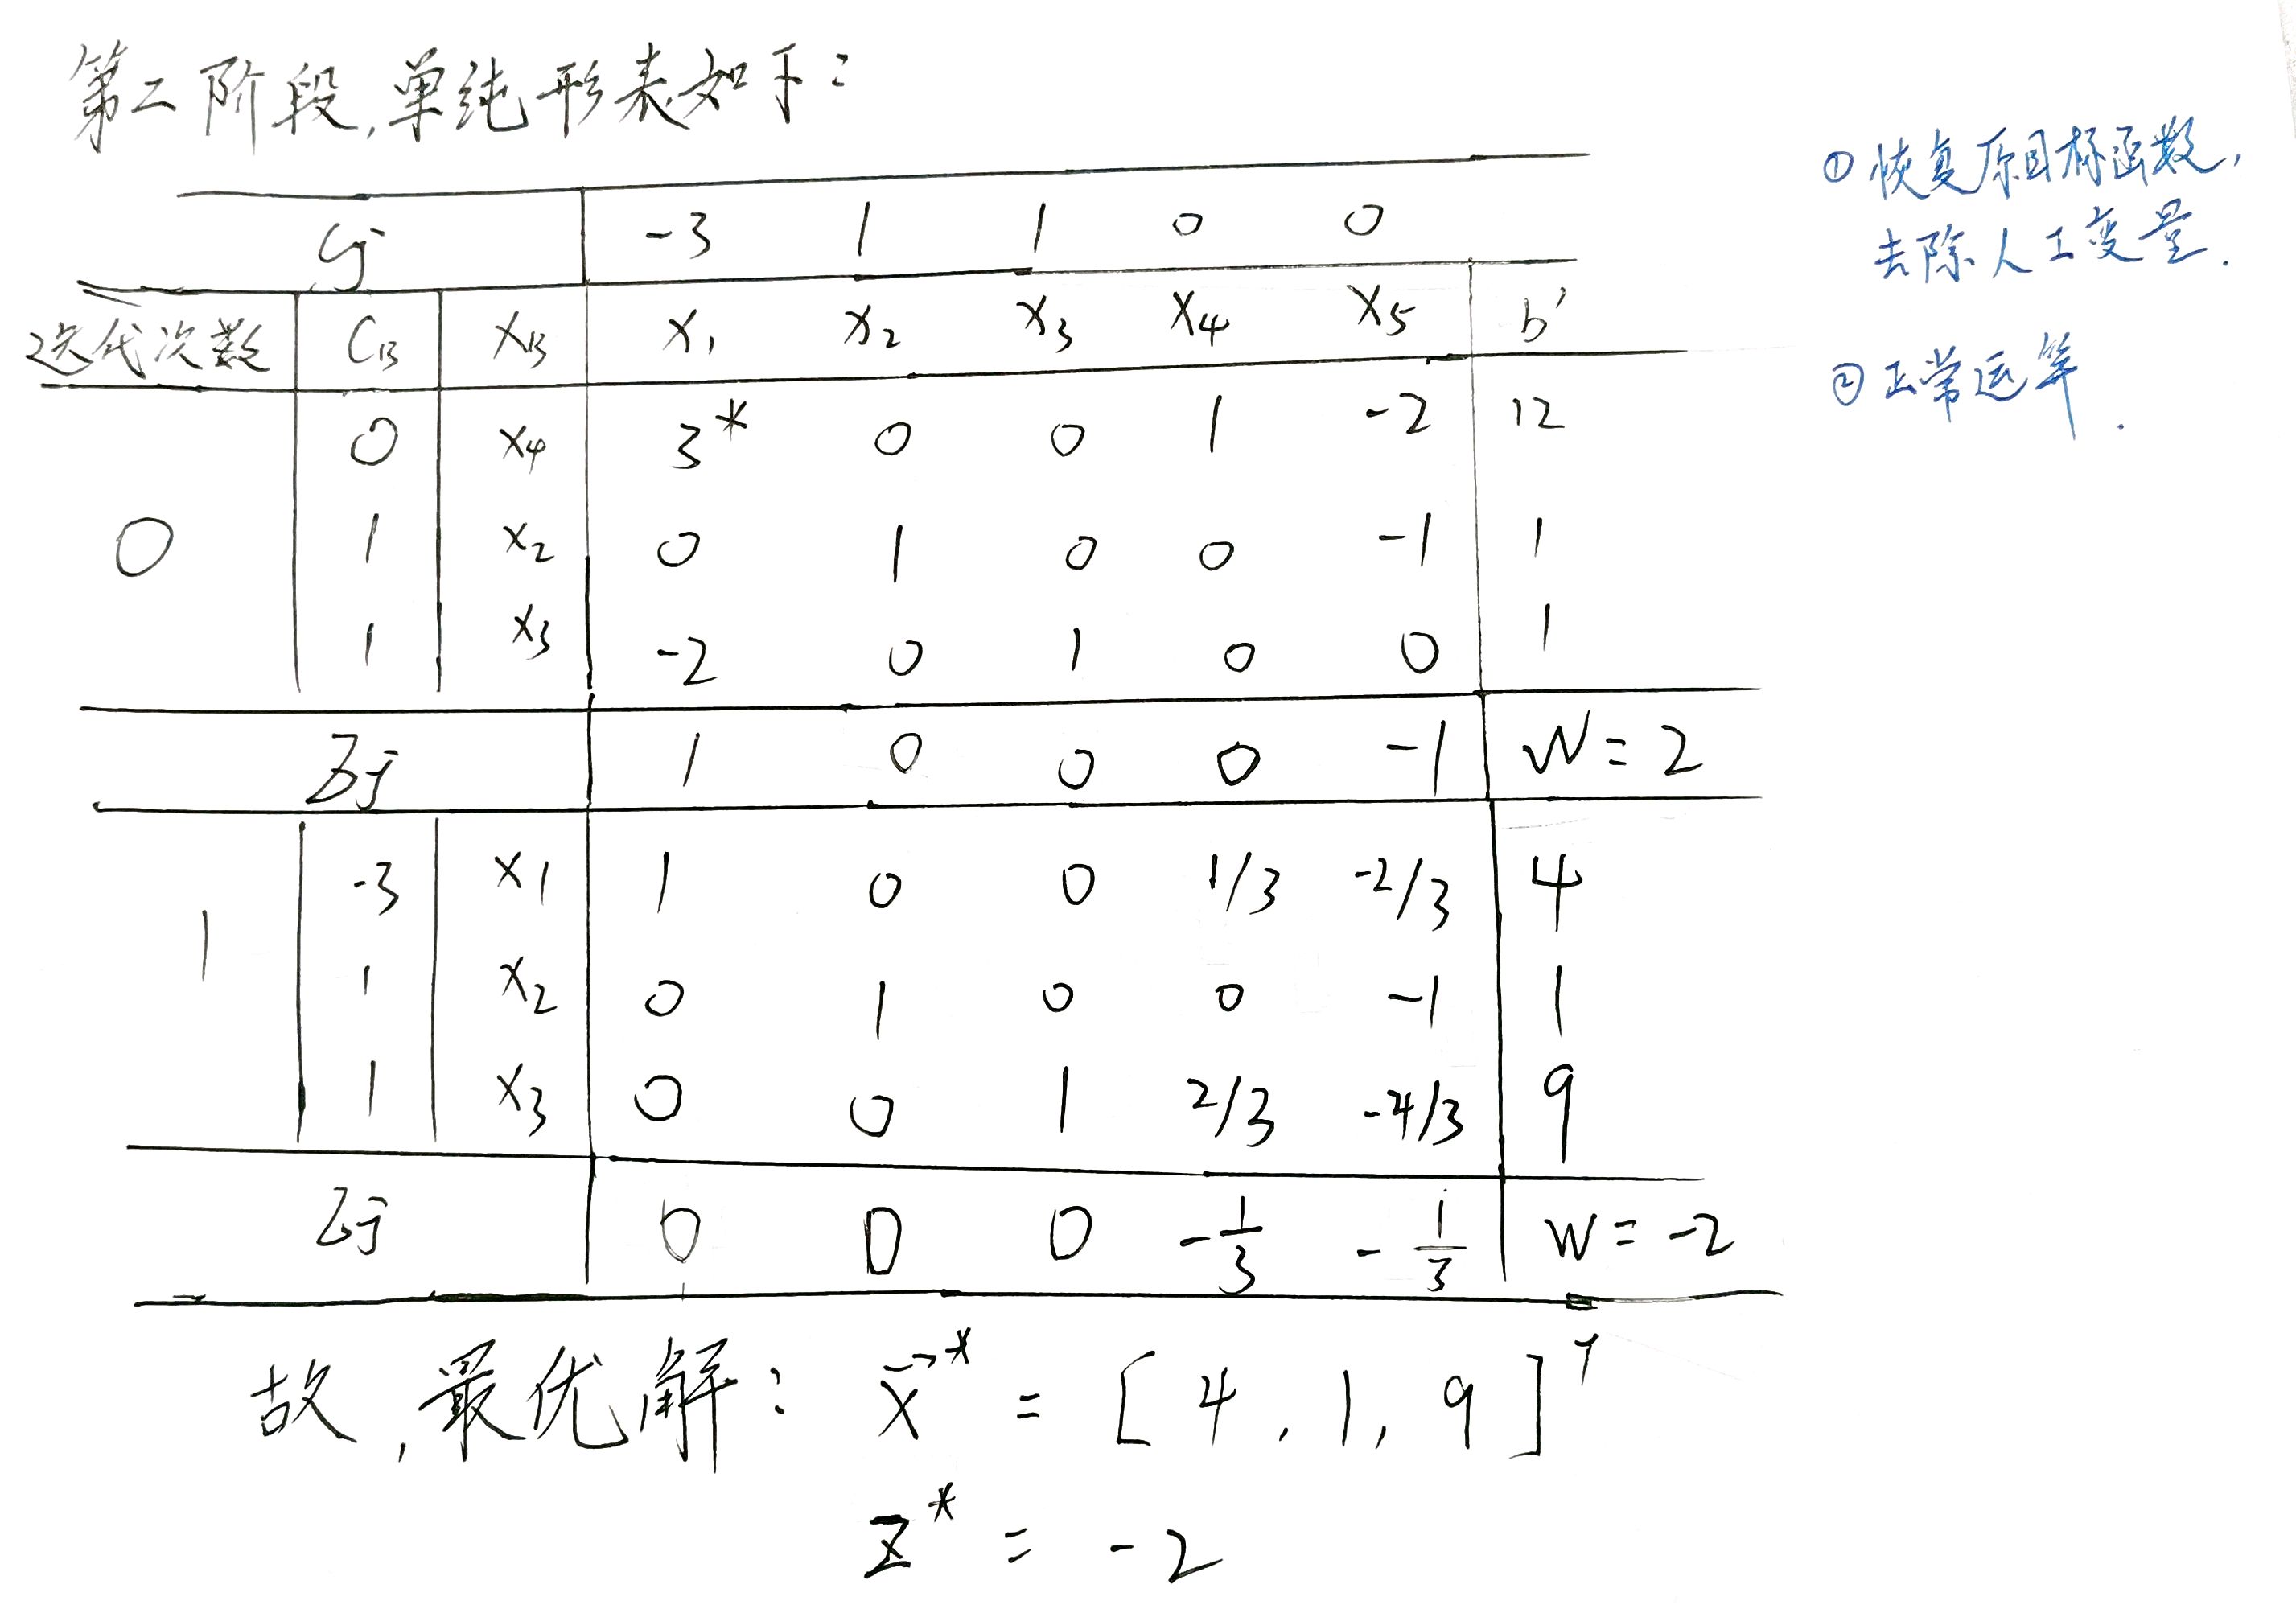 第二阶段,单纯形表如下:
① 恢复原目标函数,
去除人工变量.
② 正常运算.
Cj -3 1 1 0 0
迭代次数 CB XB X1 X2 X3 X4 X5 b'
0 X4 3* 0 0 1 -2 12
0 1 X2 0 1 0 0 -1 1
1 X3 -2 0 1 0 0 1
Zj 1 0 0 0 -1 W=2
-3 X1 1 0 0 1/3 -2/3 4
1 1 X2 0 1 0 0 -1 1
1 X3 0 0 1 2/3 -4/3 9
Zj 0 0 0 -1/3 -1/3 W=-2
故,最优解: X* = [4, 1, 9]T
Z* = -2